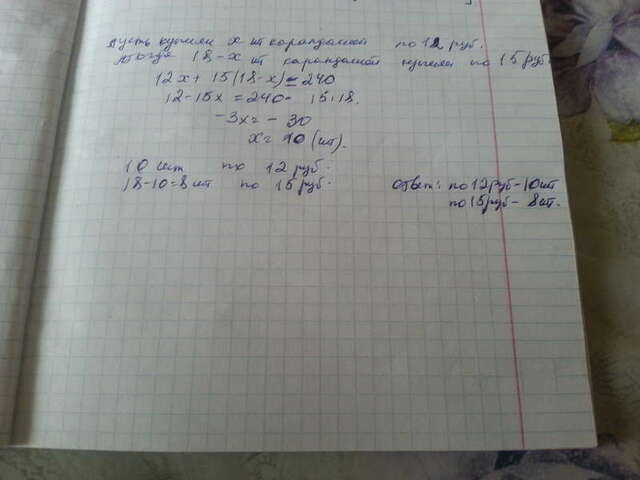 Пусть купили x шт карандашей по 12 руб.
тогда 18-x шт карандашей купили по 15 руб.
12x + 15(18-x) = 240
12-15x = 240- 15·18.
-3x = - 30
x = 10 (шт).
10 шт по 12 руб.
18-10=8 шт по 15 руб.
Ответ: по 12 руб - 10 шт
по 15 руб - 8 шт.